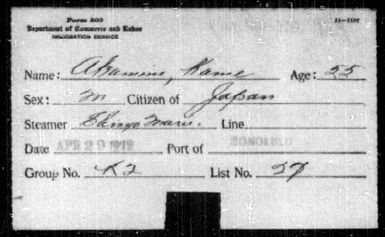 Form 500 11-1522
Department of Commerce and Labor
IMMIGRATION SERVICE
Name: Akamine, Kame Age: 55
Sex: m Citizen of Japan
Steamer Shinyo Maru. Line
Date APR 29 1912 Port of HONOLULU
Group No. K2 List No. 27